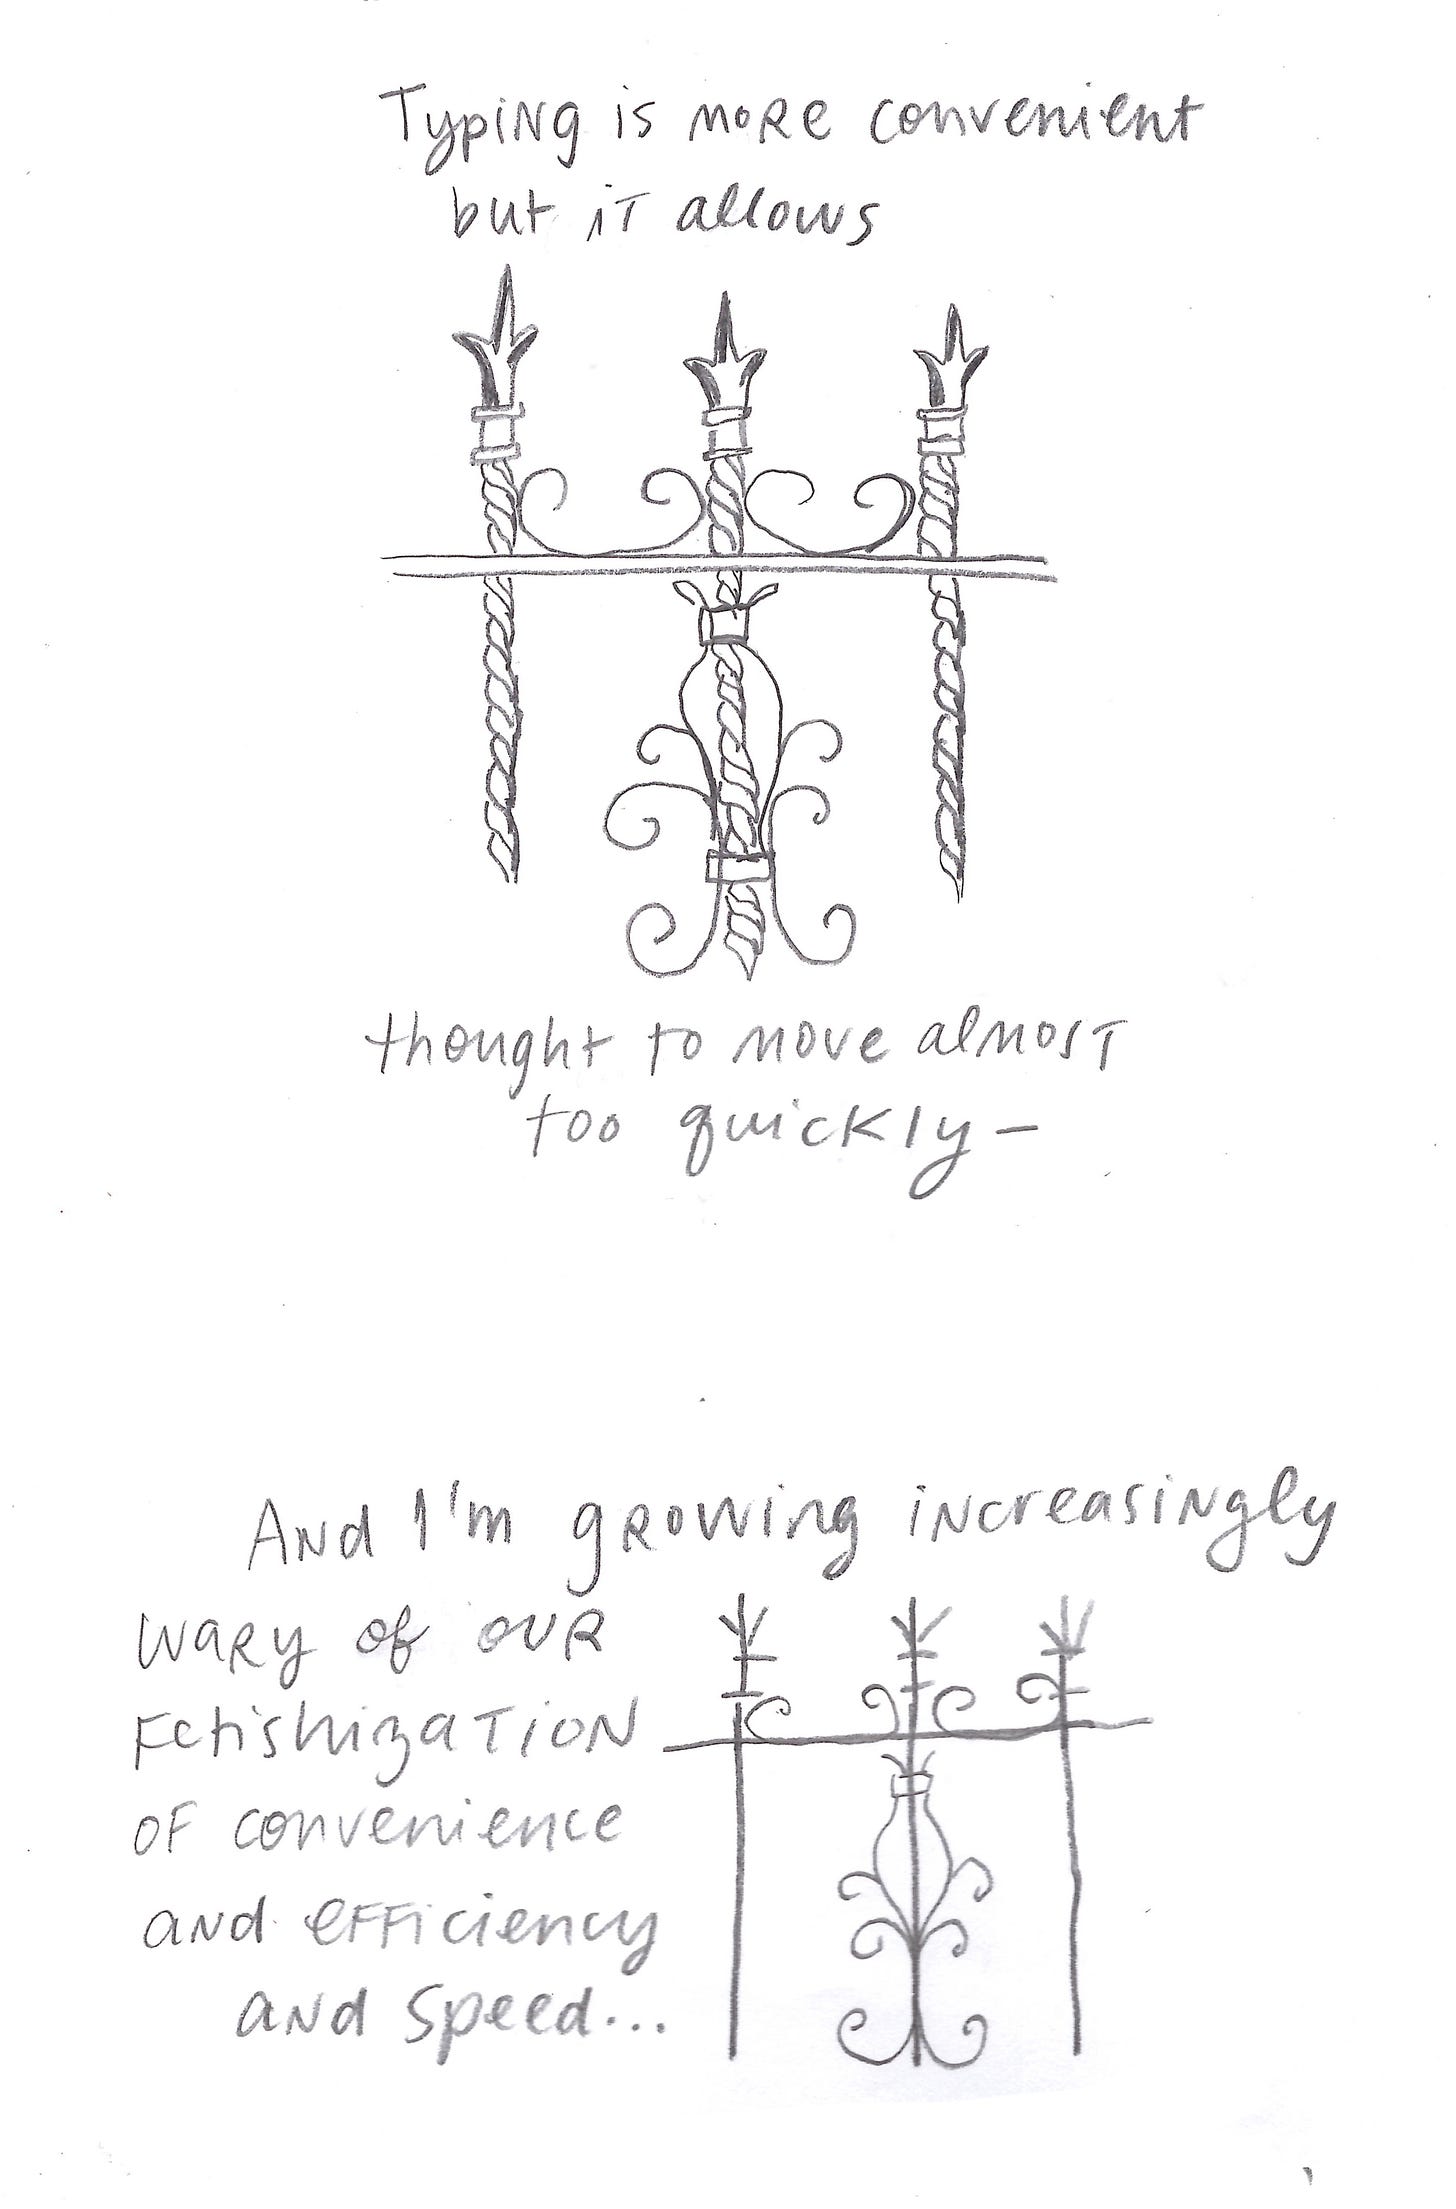 Typing is more convenient
but it allows
thought to move almost
too quickly—
And I'm growing increasingly
wary of our
fetishization
of convenience
and efficiency
and speed...